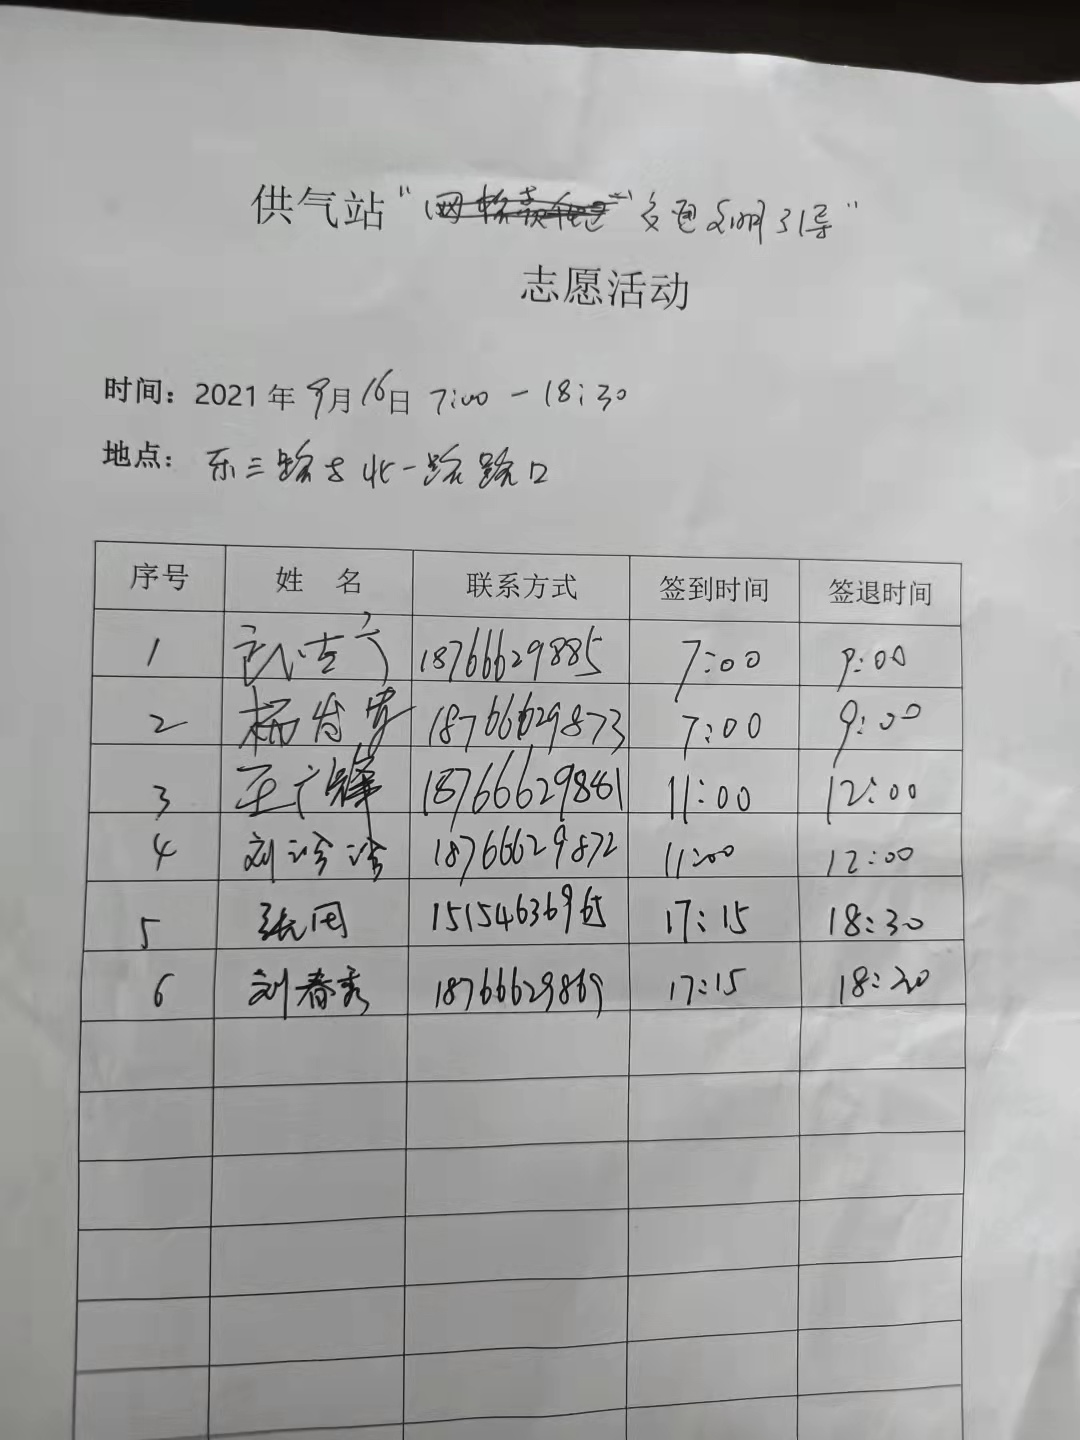 供气站“交通文明引导”
志愿活动
时间：2021年9月16日 7:00-18:30
地点：东三路与北一路路口
序号 姓名 联系方式 签到时间 签退时间
1 18766629885 7:00 9:00
2 杨 18766629873 7:00 9:00
3 王广锋 18766629881 11:00 12:00
4 刘诊诊 18766629872 11:00 12:00
5 张 15154636965 17:15 18:30
6 刘春秀 18766629869 17:15 18:30